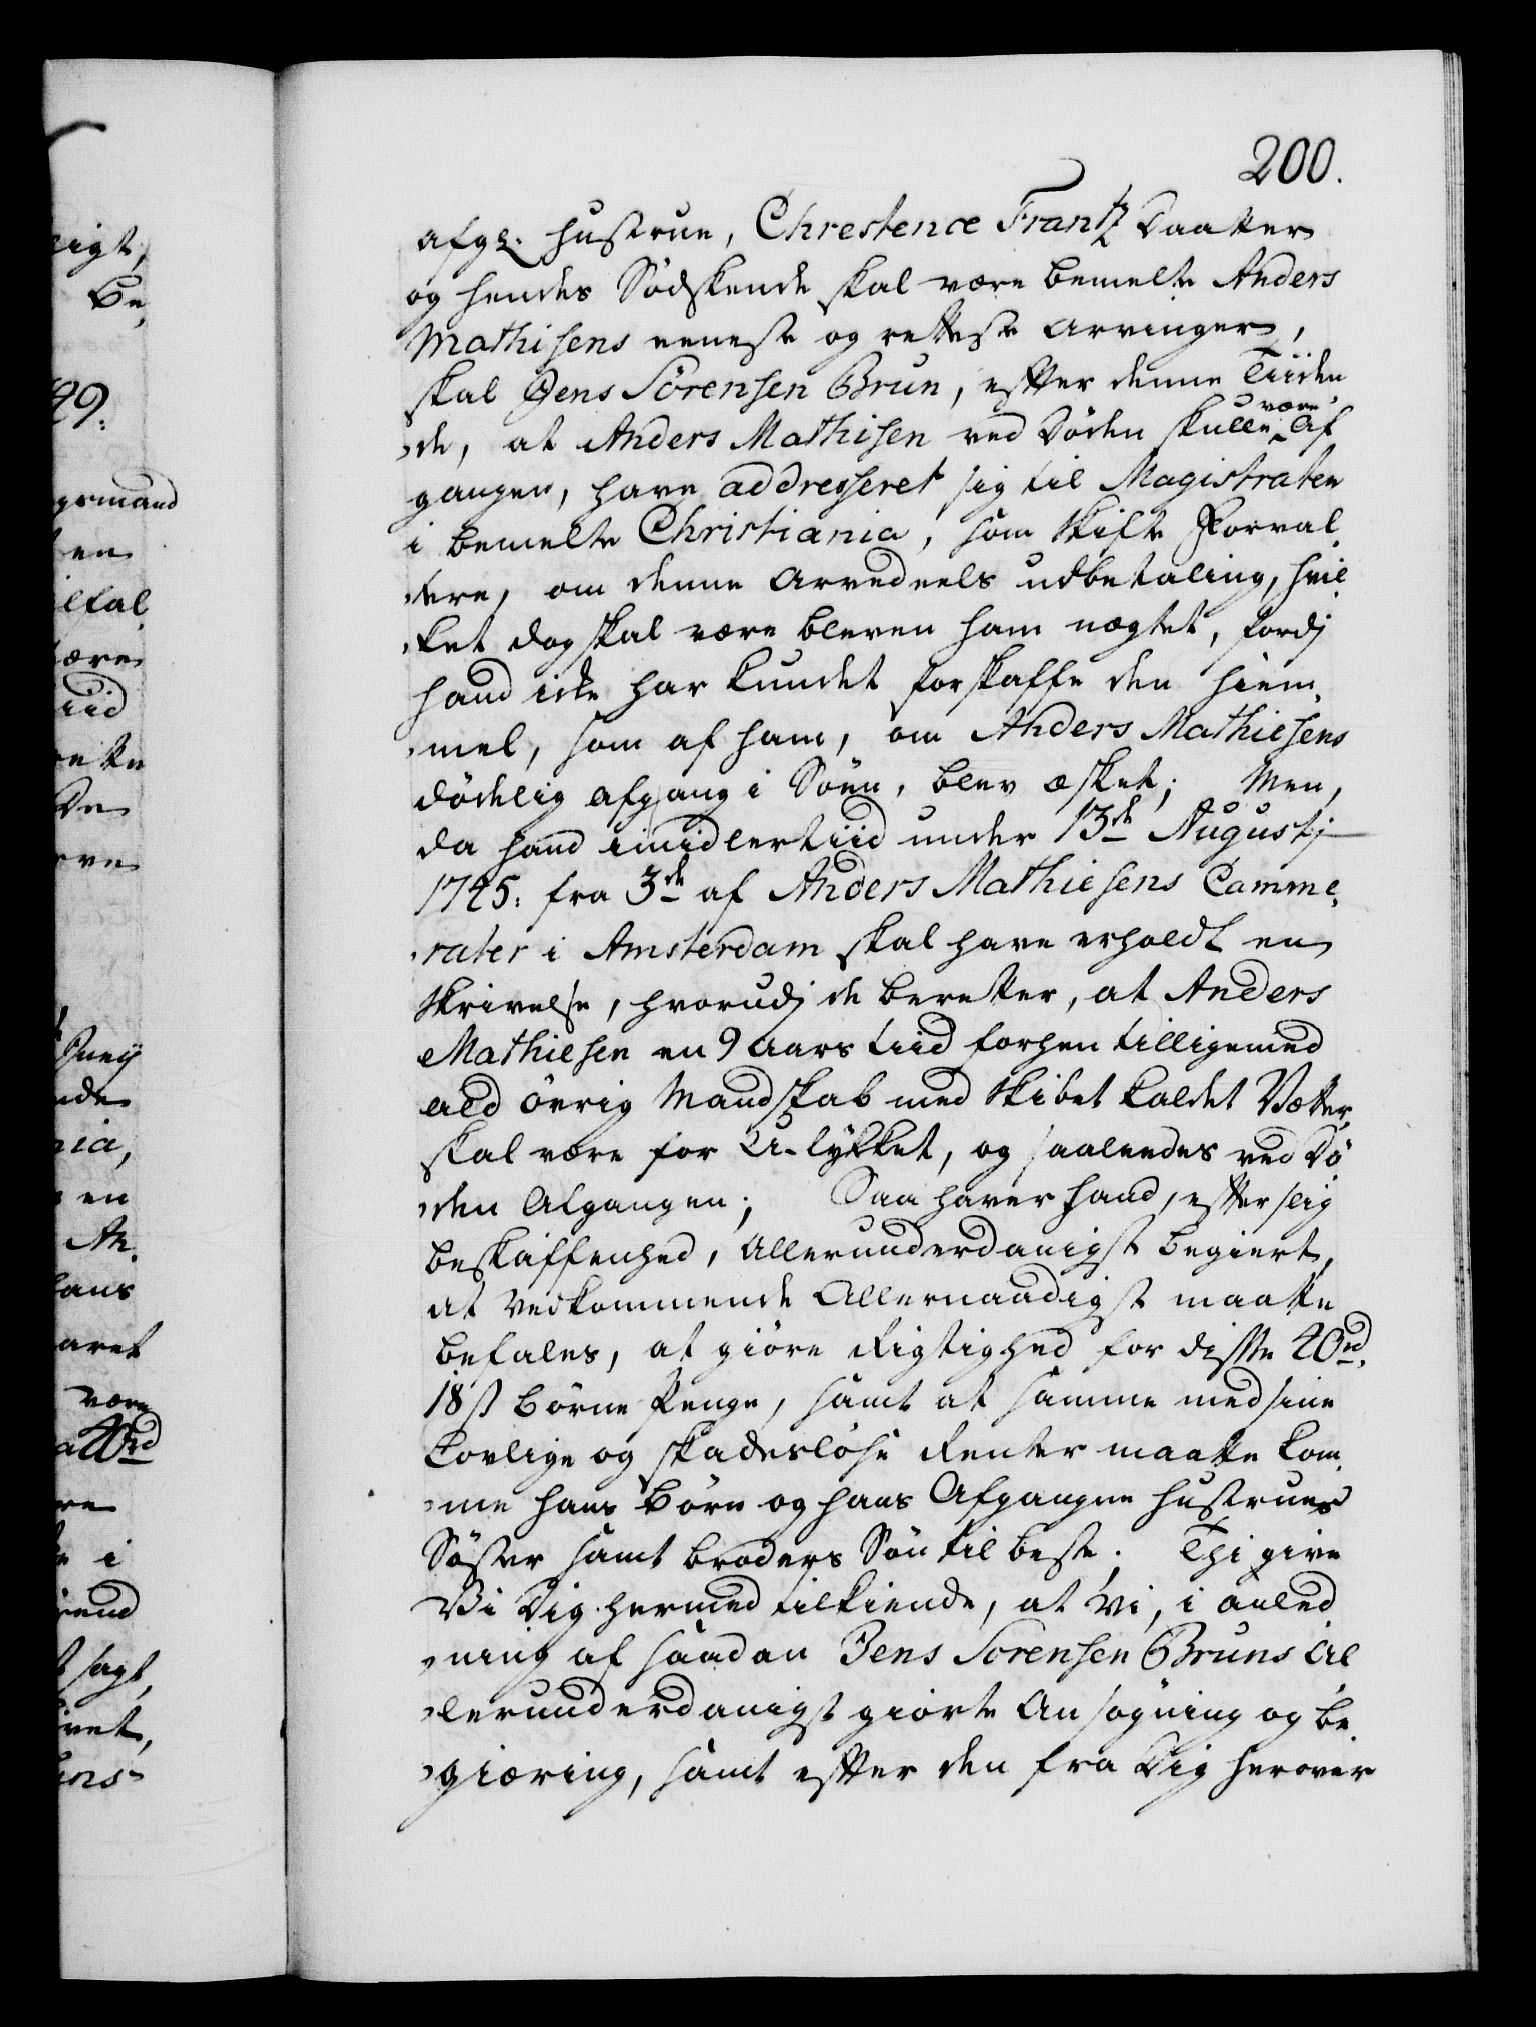 200.
afg?. Hustrue, Chrestence Frantz Daatter
og hendes Södskende skal være bemelte Anders
Mathisens eeneste og retteste Arvinger,
skal Jens Sörensen Brun, efter denne Tiiden
de, at Anders Mathisen ved Döden skulle være Af
gangen, have addresseret sig til Magistraten
i bemelte Christiania, som Skifte Forval
tere, om denne Arvedeels udbetaling, hvil
ket dog skal være bleven ham nægtet, fordj
hand icke har kundet forskaffe den Hiem
mel, som af ham, om Anders Mathiesens
dödelig afgang i Söen, blev æsket; Men,
da hand imidlertiid under 13de Augustj
1745. fra 3de af Anders Mathiesens Camme
rater i Amsterdam skal have erholdt en
Skrivelse, hvorudj de beretter, at Anders
Mathiesen en 9 Aars tiid forhen tilligemed
ald övrig Mandskab med Skibet kaldet Vetter
skal være for U-lykket, og saaleedes ved Dö
den Afgangen; Saa haver hand, efter slig
beskaffenhed, Allerunderdanigst begiert,
at Vedkommende Allernaadigst maatte
befales, at giöre Rigtighed for disse 40rd
18 ß Börne Penge, samt at samme med sine
Lovlige og skadeslöse Renter maatte kom
me hans Börn og hans Afgangne Hustrues
Söster samt broders Sön til beste. Thi give
Vi Dig hermed tilkiende, at Vi, i anled
ning af saadan Jens Sorensen Bruns Al
lerunderdanigst giorte Ansögning og be
giæring, samt efter den fra Dig herover